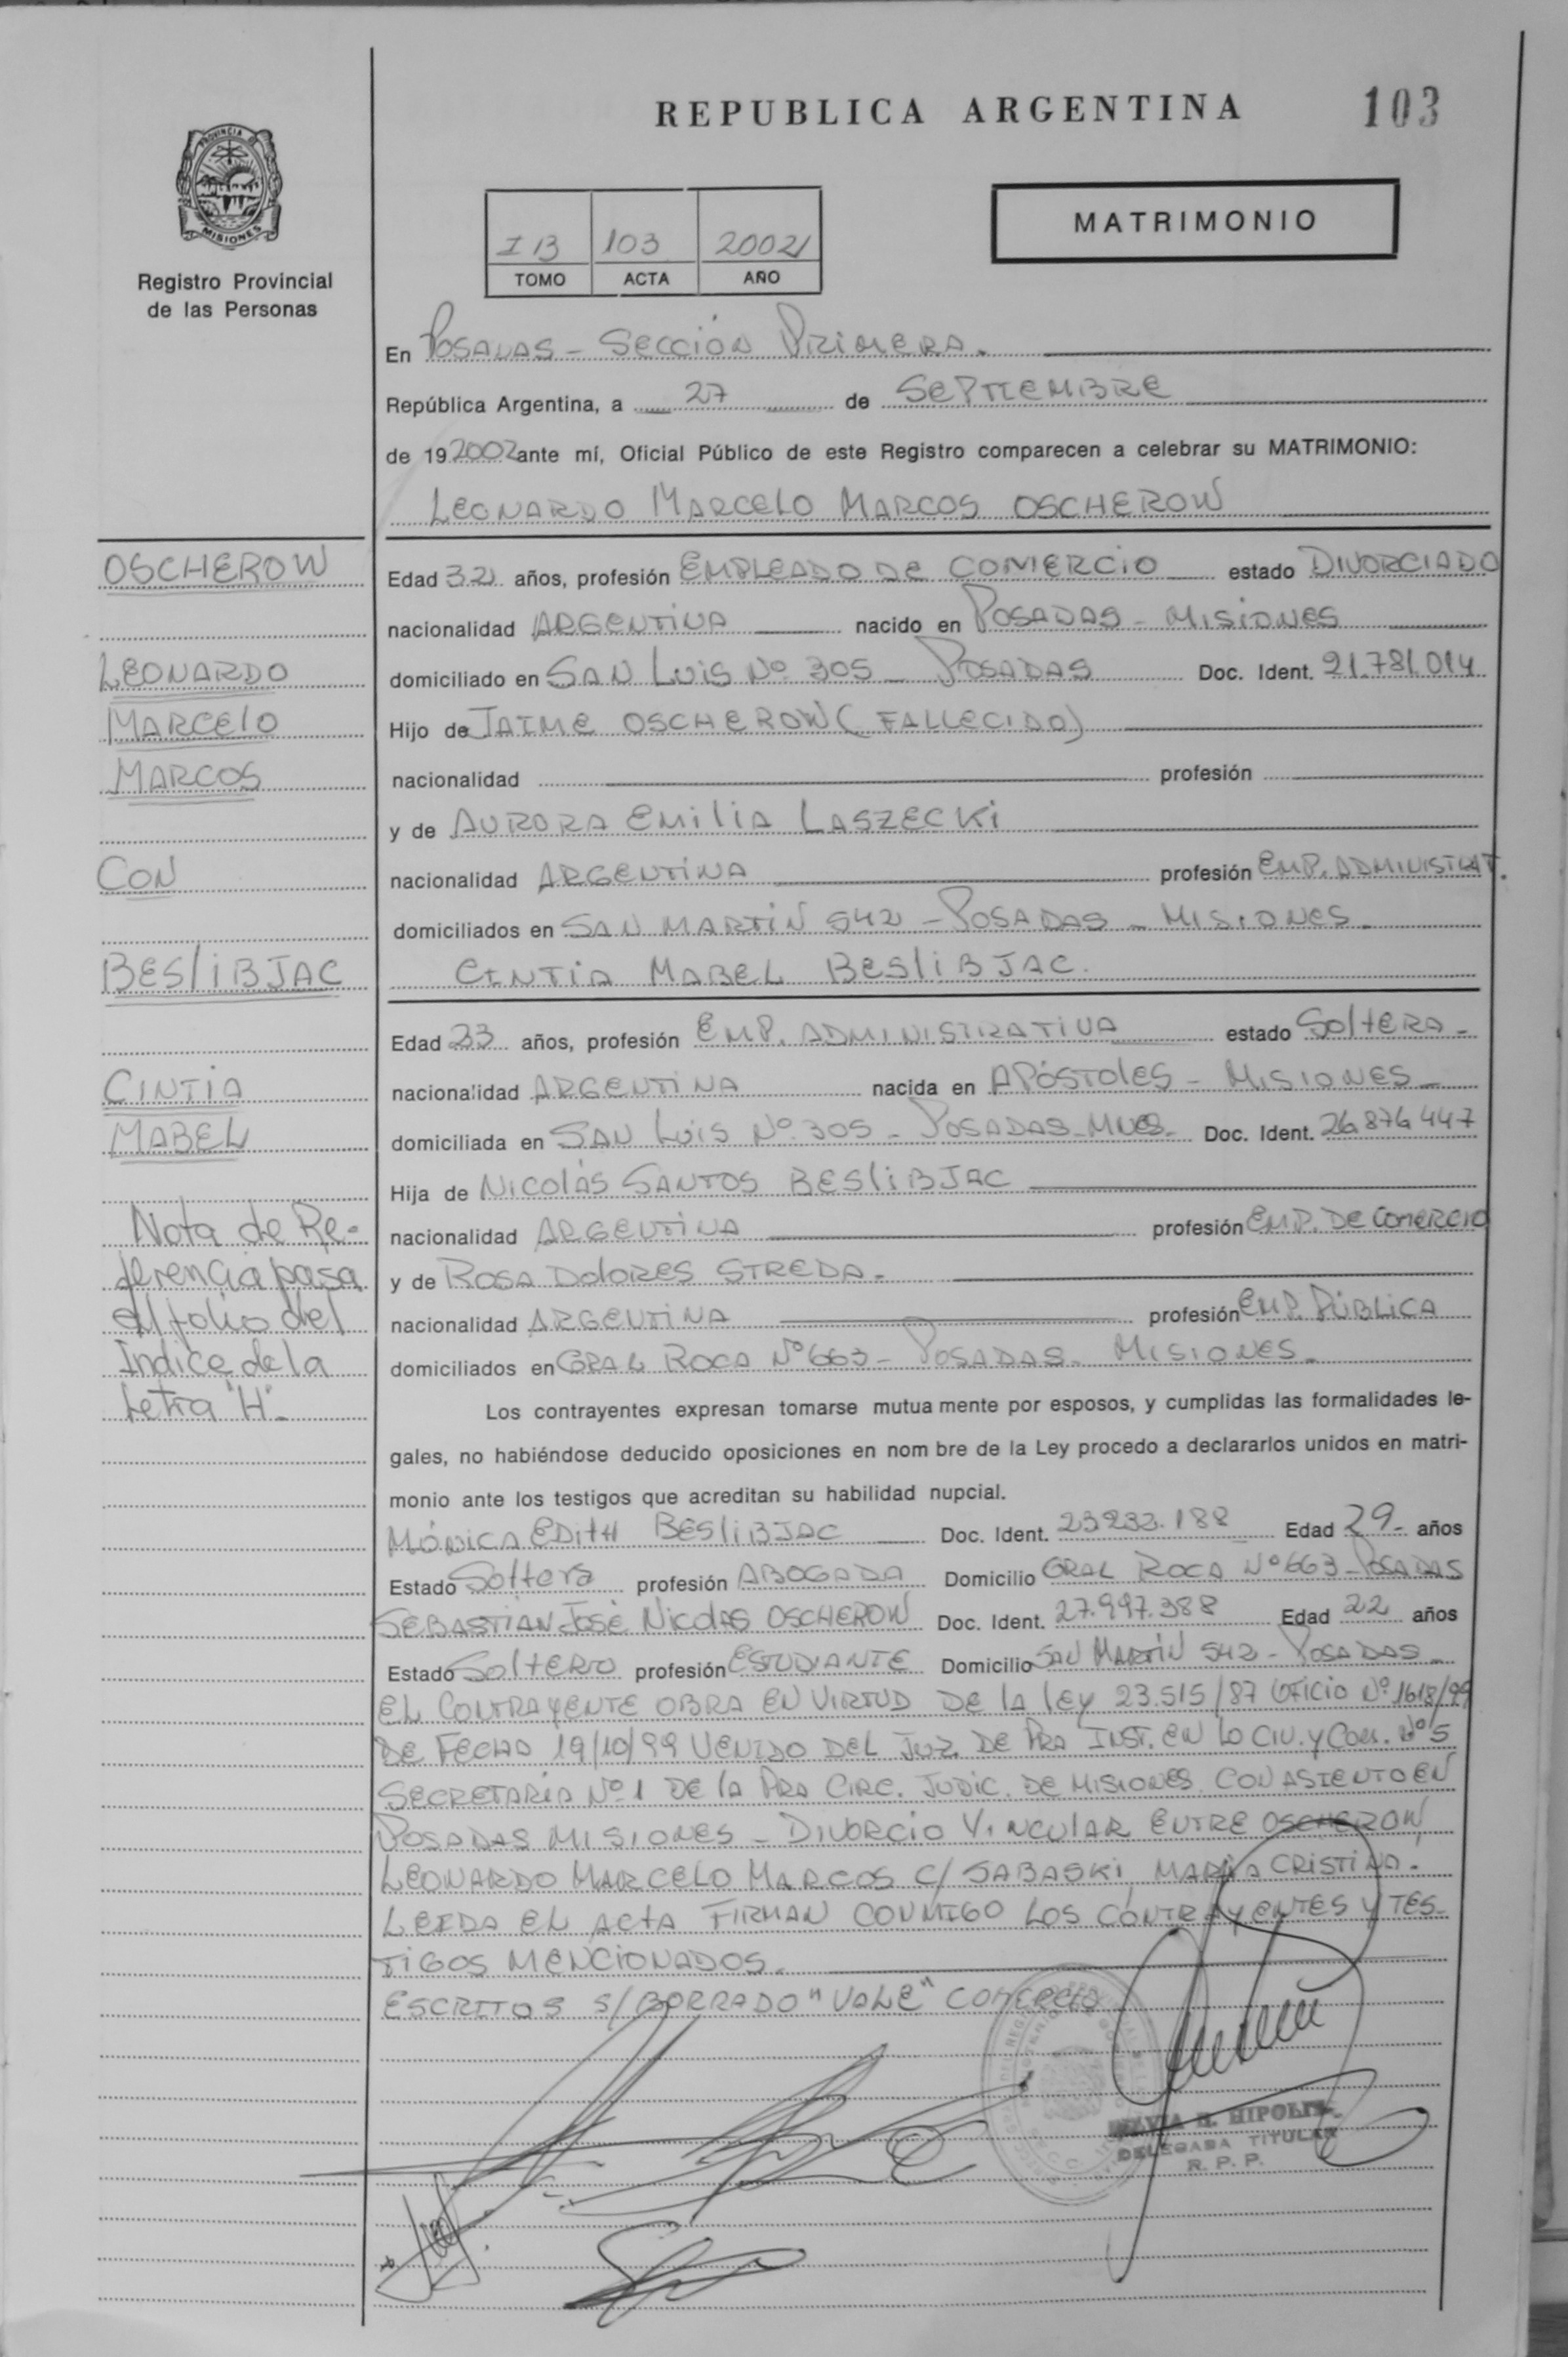 REPUBLICA ARGENTINA 103
PROVINCIA DE
MISIONES
Registro Provincial
de las Personas
I B 103 2002
TOMO ACTA AÑO
MATRIMONIO
En POSADAS - SECCIÓN PRIMERA.
República Argentina, a 27 de SEPTIEMBRE
de 19 2002 ante mí, Oficial Público de este Registro comparecen a celebrar su MATRIMONIO:
LEONARDO MARCELO MARCOS OSCHEROW
OSCHEROW
LEONARDO
MARCELO
MARCOS
CON
BESLIBJAC
CINTIA
MABEL
Nota de Re-
ferencia pasa
al folio del
Indice de la
Letra "H"-
Edad 32 años, profesión EMPLEADO DE COMERCIO estado DIVORCIADO
nacionalidad ARGENTINA nacido en POSADAS - MISIONES
domiciliado en SAN LUIS Nº 305 - POSADAS Doc. Ident. 21.781.014
Hijo de JAIME OSCHEROW (FALLECIDO)
nacionalidad profesión
y de AURORA EMILIA LASZECKI
nacionalidad ARGENTINA profesión EMP. ADMINISTRAT.
domiciliados en SAN MARTIN 542 - POSADAS - MISIONES
CINTIA MABEL BESLIBJAC.
Edad 23 años, profesión EMP. ADMINISTRATIVA estado SOLTERA -
nacionalidad ARGENTINA nacida en APÓSTOLES - MISIONES -
domiciliada en SAN LUIS Nº 305 - POSADAS - MNES - Doc. Ident. 26.876.447
Hija de NICOLÁS SANTOS BESLIBJAC
nacionalidad ARGENTINA profesión EMP. DE COMERCIO
y de ROSA DOLORES STREDA.
nacionalidad ARGENTINA profesión EMP. PÚBLICA
domiciliados en GRAL ROCA Nº 663 - POSADAS - MISIONES -
Los contrayentes expresan tomarse mutua mente por esposos, y cumplidas las formalidades le-
gales, no habiéndose deducido oposiciones en nom bre de la Ley procedo a declararlos unidos en matri-
monio ante los testigos que acreditan su habilidad nupcial.
MÓNICA EDITH BESLIBJAC Doc. Ident. 23.233.188 Edad 29 - años
Estado Soltera profesión ABOGADA Domicilio GRAL ROCA Nº 663 - POSADAS
SEBASTIAN JOSÉ NICOLAS OSCHEROW Doc. Ident. 27.997.388 Edad 22 años
Estado SOLTERO profesión ESTUDIANTE Domicilio SAN MARTIN 542 - POSADAS -
EL CONTRAYENTE OBRA EN VIRTUD DE LA LEY 23.515/87 OFICIO Nº 1618/99
DE FECHA 19/10/99 VENIDO DEL JUZ. DE PRA INST. EN LO CIV. Y COM. Nº 5
SECRETARIA Nº 1 DE LA PRA CIRC. JUDIC. DE MISIONES CON ASIENTO EN
POSADAS MISIONES - DIVORCIO VINCULAR ENTRE OSCHEROW,
LEONARDO MARCELO MARCOS C/ SABASKI, MARIA CRISTINA.
LEIDA EL ACTA FIRMAN CONMIGO LOS CONTRAYENTES Y TES-
TIGOS MENCIONADOS.
ESCRITOS S/BORRADO "VALE" COMERCIO
HIPOLIT
DELEGADA TITULAR
R. P. P.